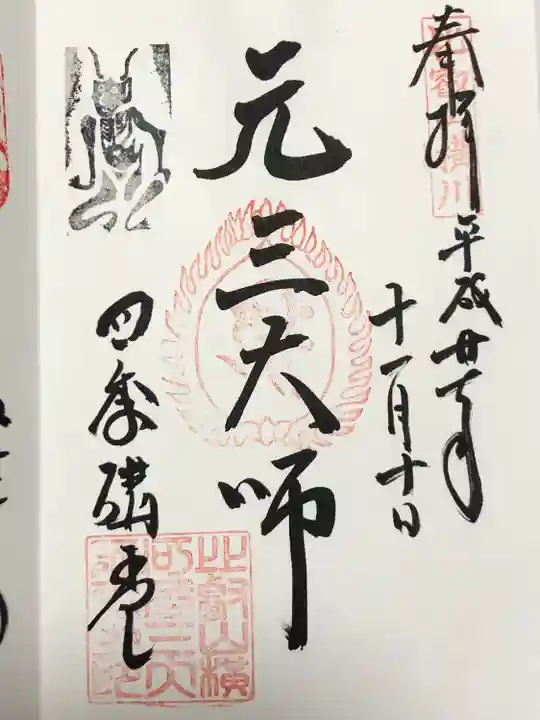 奉拝
比叡山横川
平成廿一年
十一月十日
元三大師
四季講堂
比叡山横